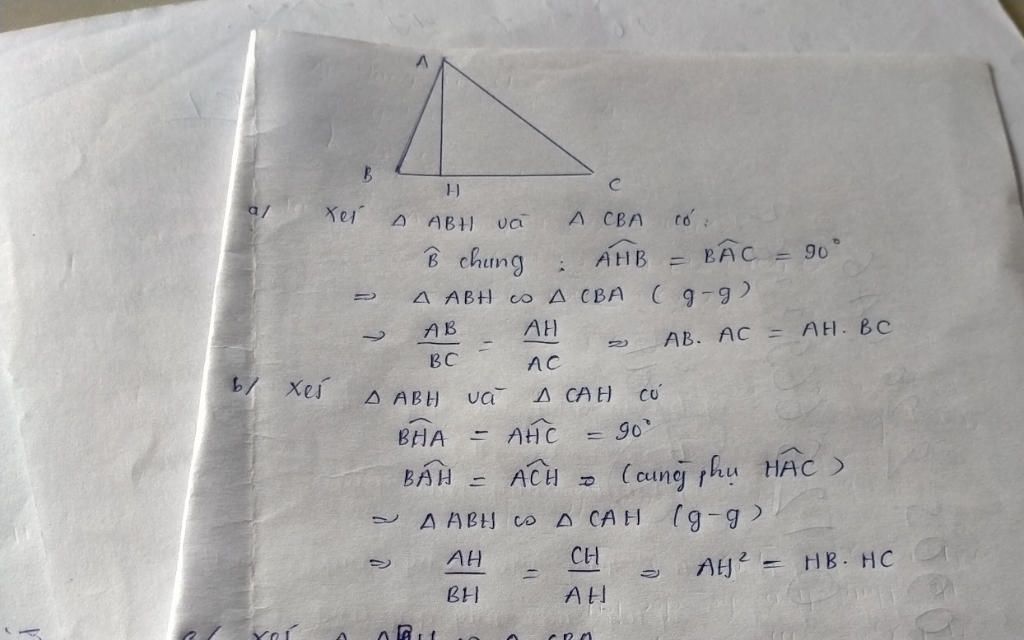 A
B
H
C
a/ Xét Δ ABH và Δ CBA có:
B̂ chung ; AĤB = BÂC = 90°
=> Δ ABH ∽ Δ CBA ( g-g)
=> AB/BC = AH/AC => AB. AC = AH. BC
b/ Xét Δ ABH và Δ CAH có
BĤA = AĤC = 90°
BÂH = AĈH = (cùng phụ HÂC )
=> Δ ABH ∽ Δ CAH (g-g)
=> AH/BH = CH/AH => AH² = HB. HC